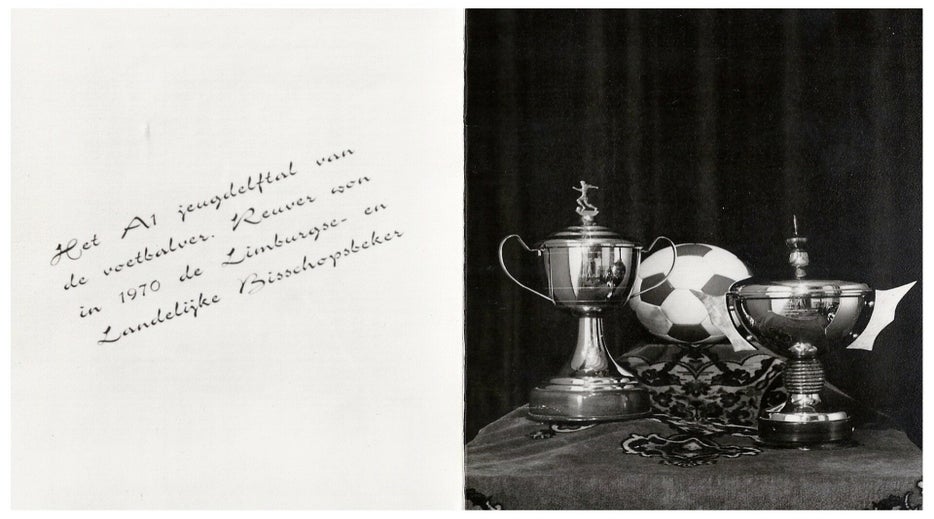 Het A1 jeugdelftal van
de voetbalver. Reuver won
in 1970 de Limburgse- en
Landelijke Bisschopsbeker